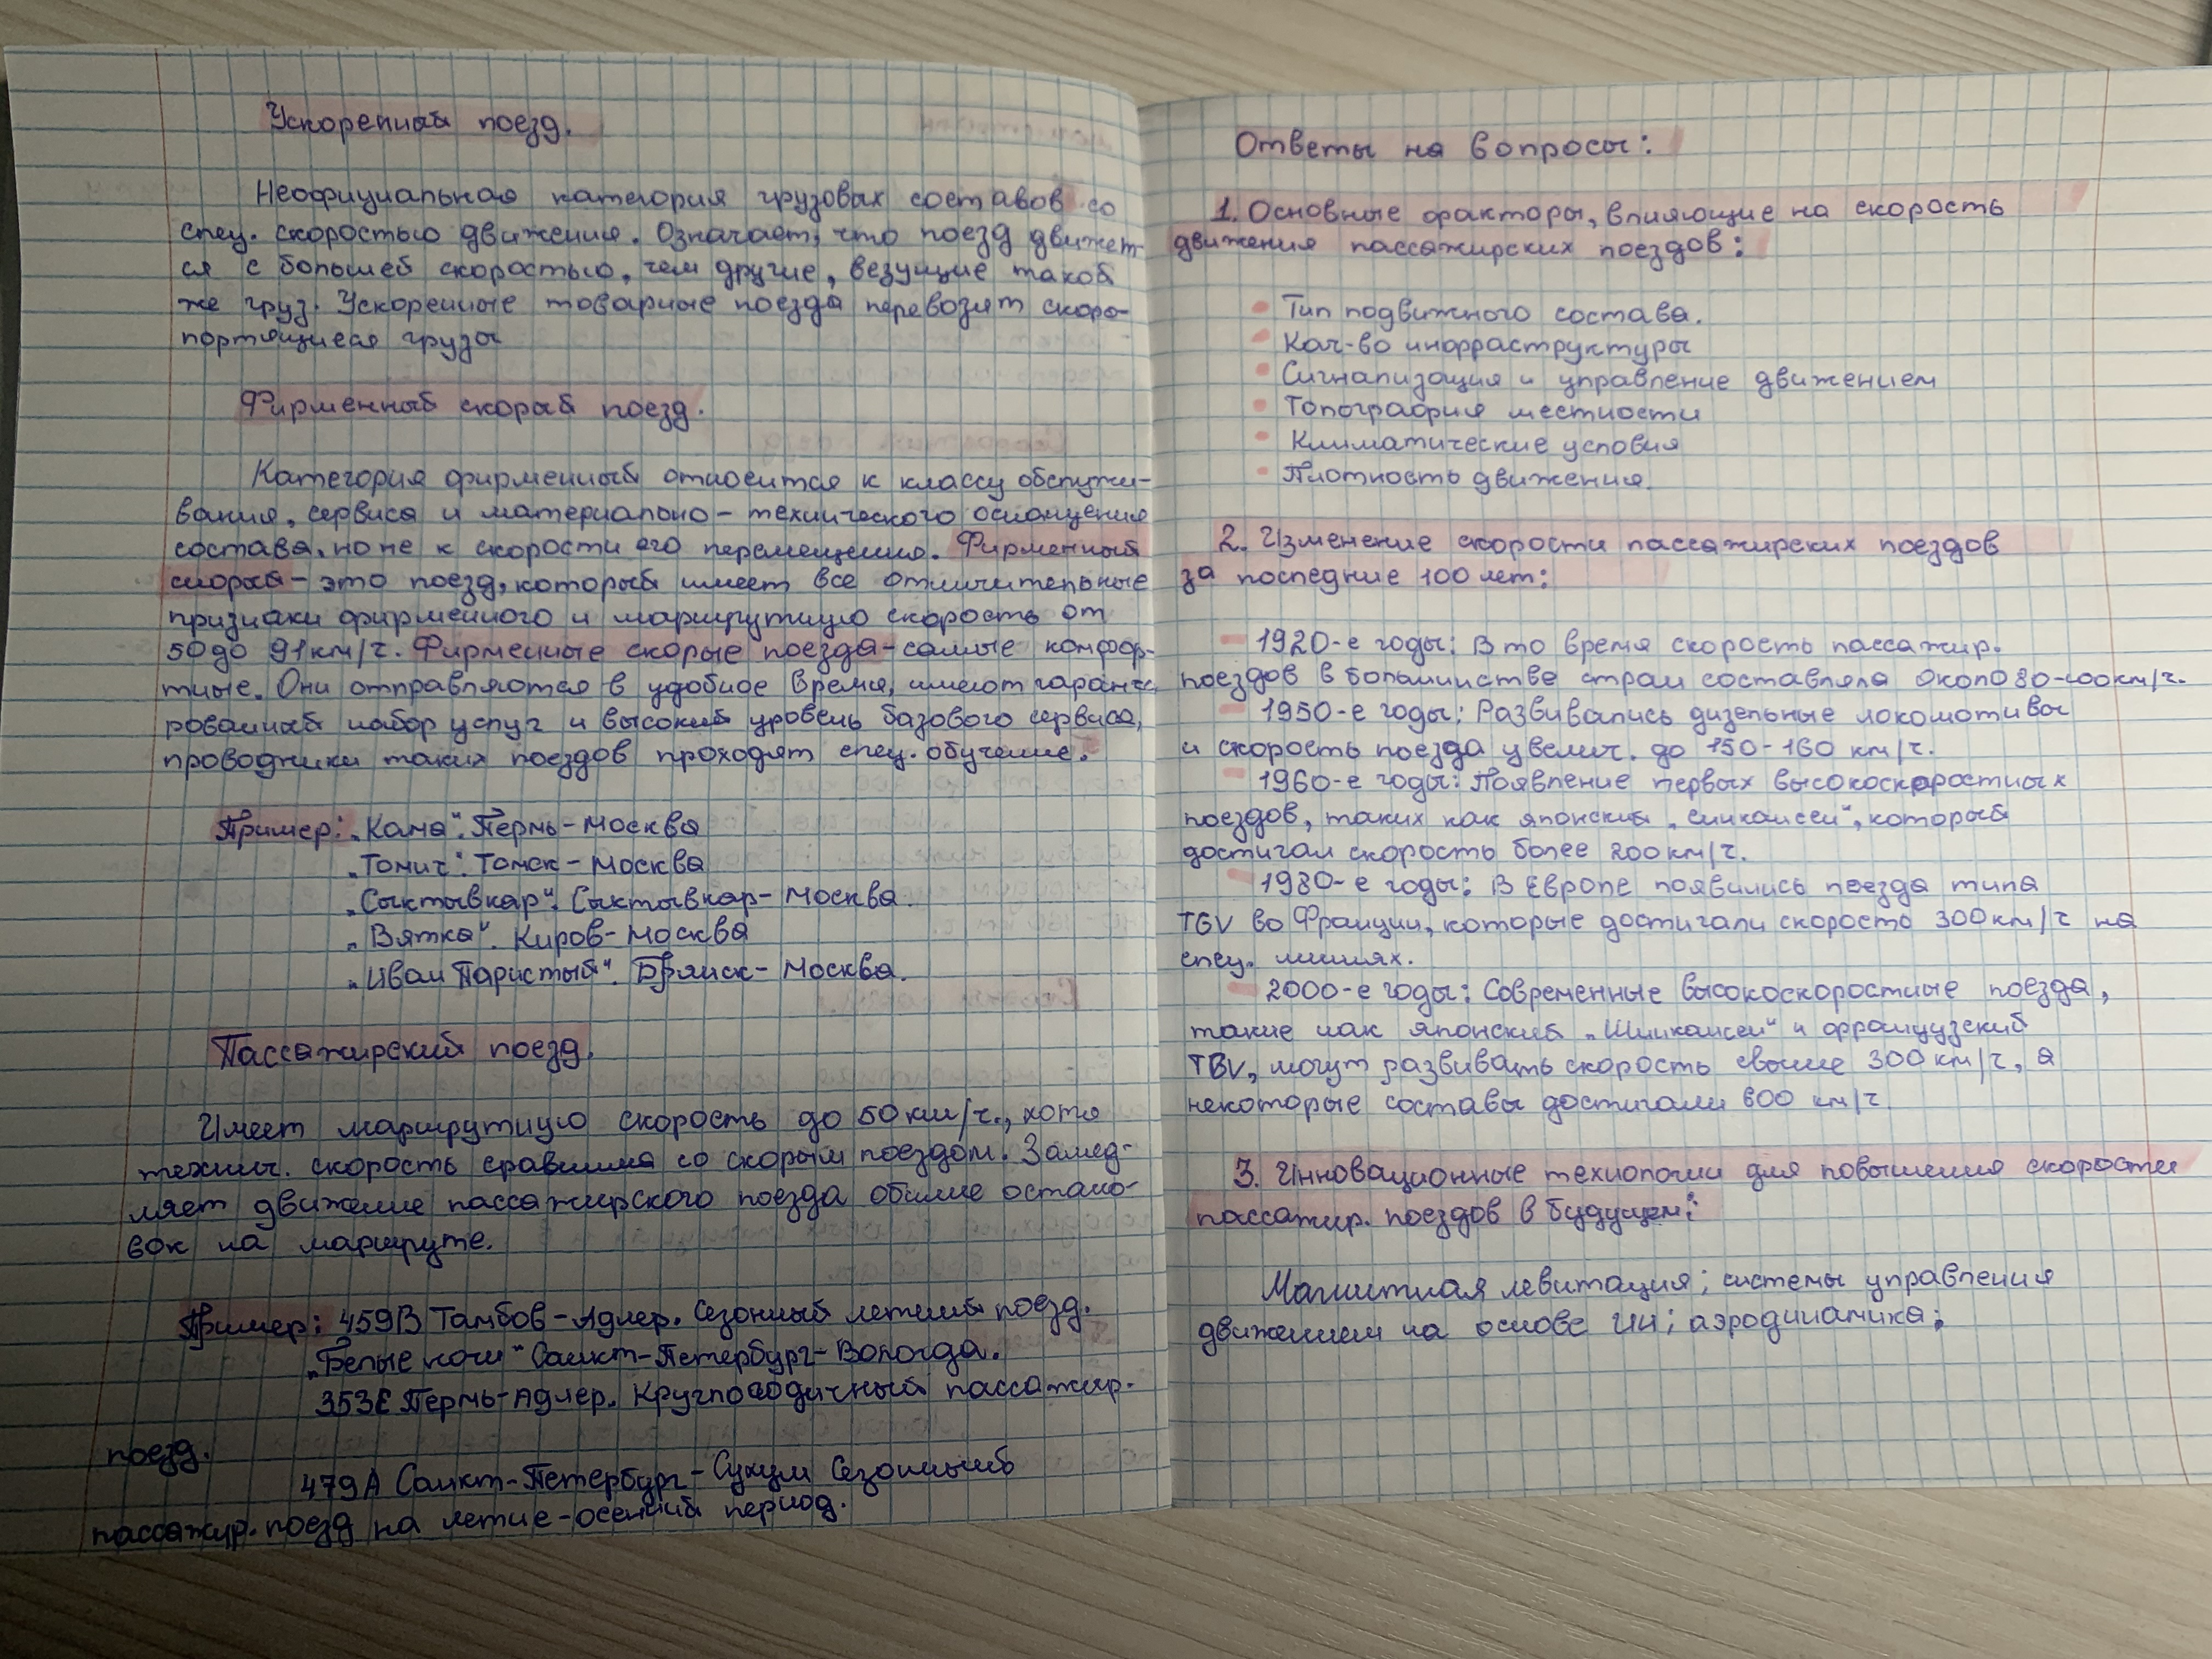 Ускоренный поезд.
Неофициальная категория грузовых составов со
спец. скоростью движения. Означает, что поезд движет-
ся с большей скоростью, чем другие, везущие такой
же груз. Ускоренные товарные поезда перевозят скоро-
портящиеся грузы
Фирменный скорый поезд.
Категория фирменный относится к классу обслужи-
вания, сервиса и материально-технического оснащения
состава, но не к скорости его перемещения. Фирменный
скорый - это поезд, который имеет все отличительные
признаки фирменного и маршрутную скорость от
50 до 91 км/ч. Фирменные скорые поезда - самые комфор-
тные. Они отправляются в удобное время, имеют гаранти
рованный набор услуг и высокий уровень базового сервиса,
проводники таких поездов проходят спец. обучение.
Пример: „Кама". Пермь-Москва
„Томич". Томск-Москва
„Сыктывкар". Сыктывкар-Москва.
„Вятка". Киров-Москва
„Иван Паристый". Брянск-Москва.
Пассажирский поезд.
Имеет маршрутную скорость до 50 км/ч., хотя
технич. скорость сравнима со скорым поездом. Замед-
ляет движение пассажирского поезда обилие остано-
вок на маршруте.
Пример: 459В Тамбов-Адлер. Сезонный летний поезд.
„Белые ночи" Санкт-Петербург-Вологда.
353Е Пермь-Адлер. Круглогодичный пассажир.
поезд.
479А Санкт-Петербург-Сухум Сезонный
пассажир. поезд на летне-осенний период.
Ответы на вопросы:
1. Основные факторы, влияющие на скорость
движения пассажирских поездов:
• Тип подвижного состава.
• Кач-во инфраструктуры
• Сигнализация и управление движением
• Топография местности
• Климатические условия
• Плотность движения.
2. Изменение скорости пассажирских поездов
за последние 100 лет:
- 1920-е годы: В то время скорость пассажир.
поездов в большинстве стран составляла около 80-100 км/ч.
- 1950-е годы: Развивались дизельные локомотивы
и скорость поезда увелич. до 150-160 км/ч.
- 1960-е годы: Появление первых высокоскоростных
поездов, таких как японский „синкансен", который
достигал скорость более 200 км/ч.
- 1980-е годы: В Европе появились поезда типа
TGV во Франции, которые достигали скорость 300 км/ч на
спец. линиях.
- 2000-е годы: Современные высокоскоростные поезда,
такие как японский „Шинкансен" и французский
TBV, могут развивать скорость свыше 300 км/ч, а
некоторые составы достигали 600 км/ч
3. Инновационные технологии для повышения скорости
пассажир. поездов в будущем:
Магнитная левитация; системы управления
движением на основе ИИ; аэродинамика;